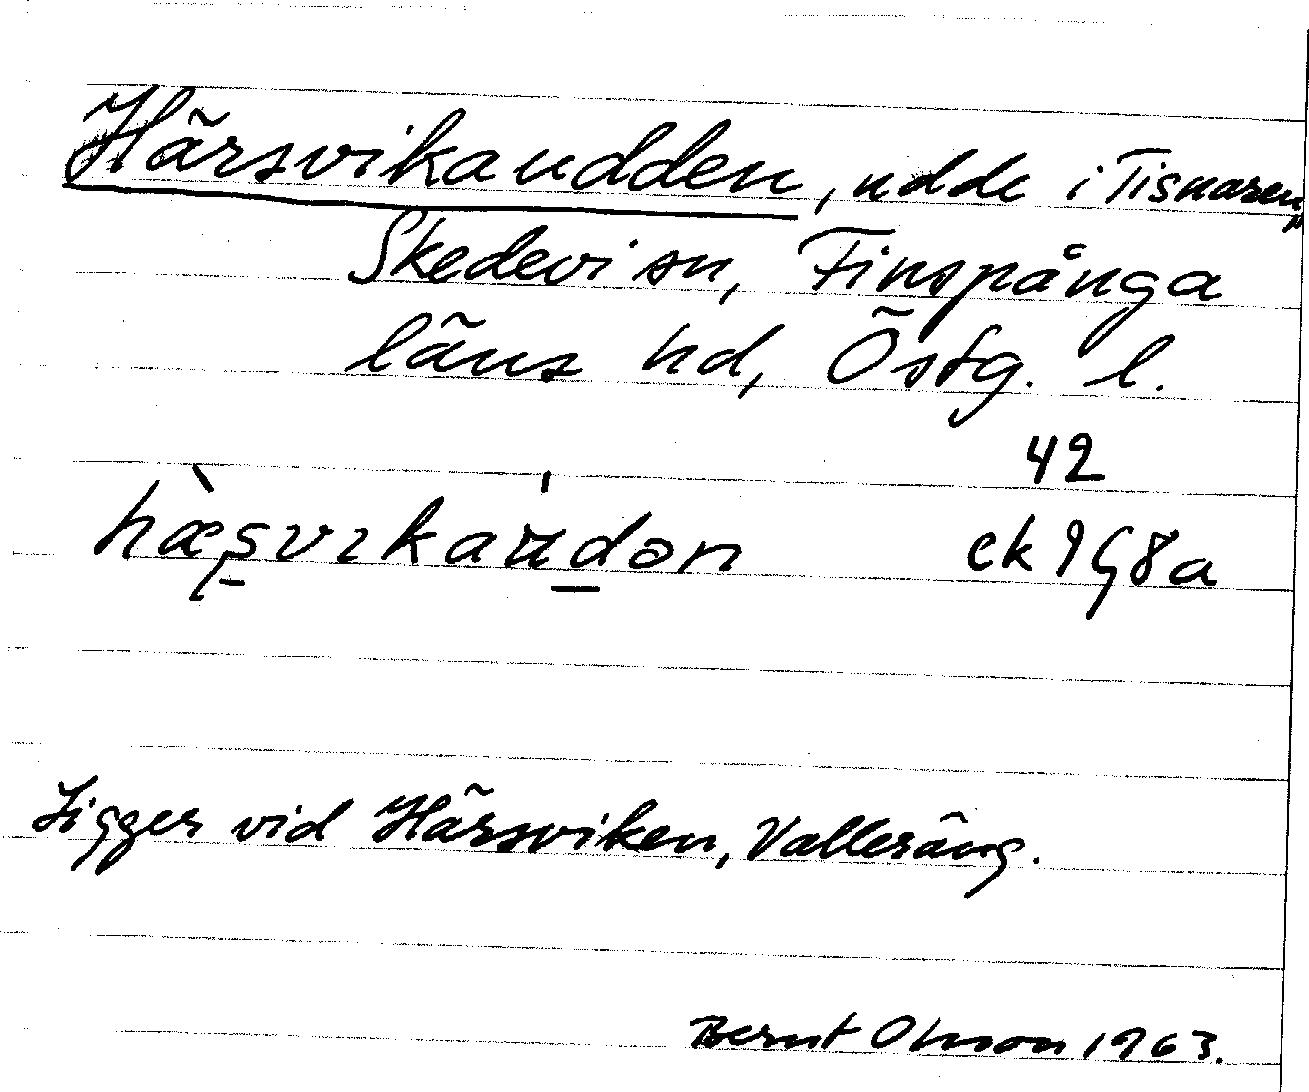 Härsvikaudden, udde i Tisnaren,
Skedevi sn, Finspånga
läns hd, Östg. l.
42
hæ̀ṣvɩkau̍dən ek 9G8a
Ligger vid Härsviken, Valleräng.
Bernt Olsson 1963.